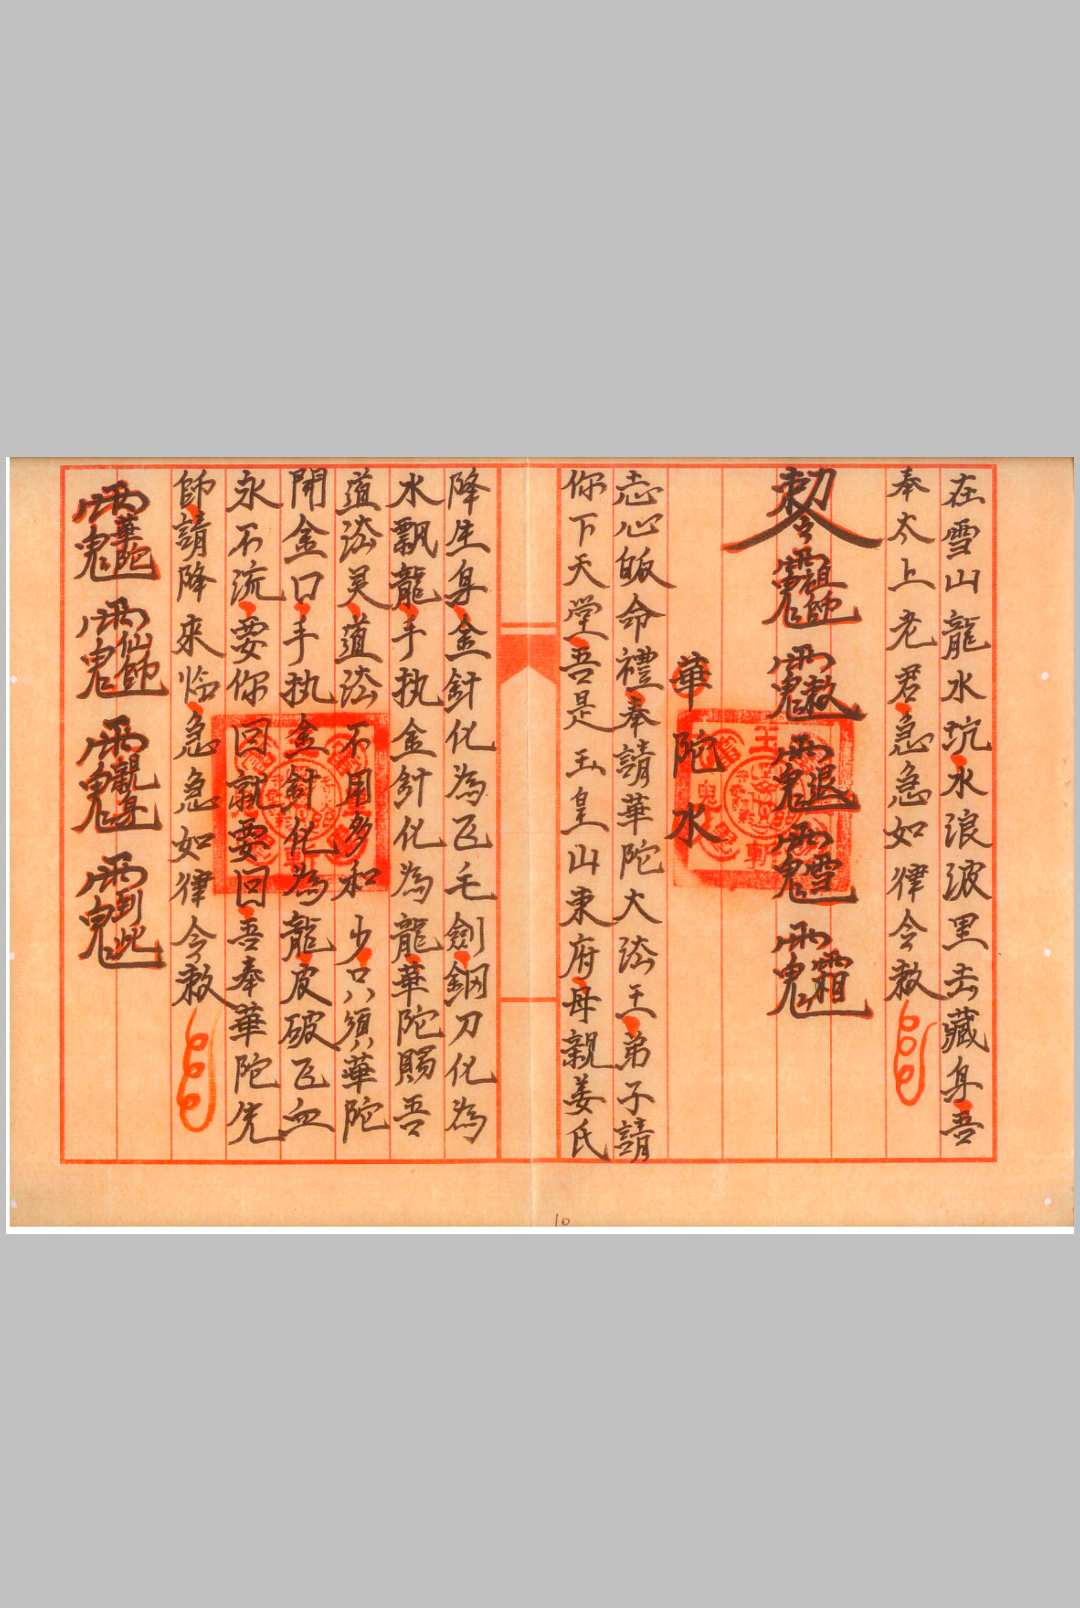 在雪山龍水坑水浪波里去藏身吾
奉太上老君急急如律令敕
勅令
祖師
敕
退
雪
霜
華陀水
志心皈命禮奉請華陀大法王弟子請
你下天堂吾是玉皇山東府母親姜氏
降生身金針化為飞毛劍鋼刀化為
水飄龍手执金針化為龍華陀賜吾
道法灵道法不用多和少只須華陀
開金口手执金針化為龍皮破飞血
永不流要你回就要回吾奉華陀先
師請降來临急急如律令敕
華陀
仙師
親身
到此
10